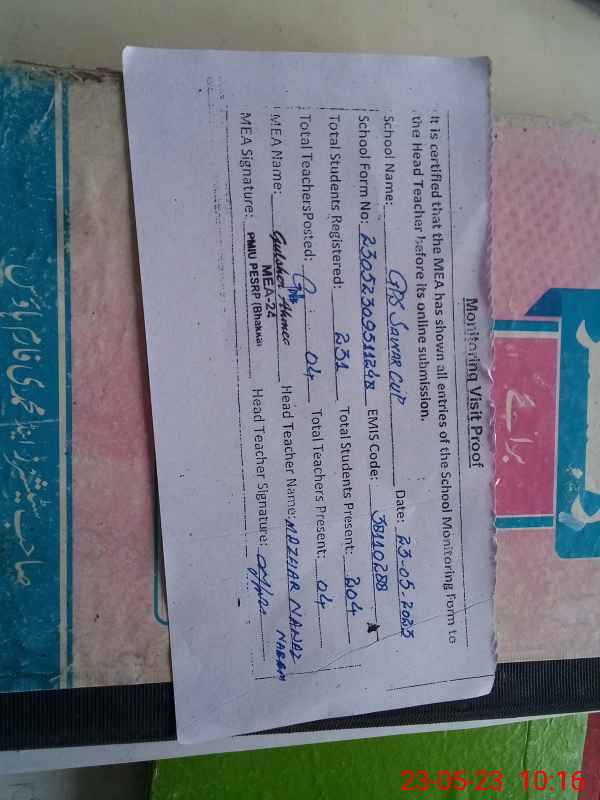 Monitoring Visit Proof
It is certified that the MEA has shown all entries of the School Monitoring Form to
the Head Teacher before its online submission.
School Name: GPS SAWAR GUP Date: 23-05-2023
School Form No: 2305230951124B EMIS Code: 38110288
Total Students Registered: 231 Total Students Present: 204
Total TeachersPosted: 04 Total Teachers Present: 04
MEA Name: Gulsher Ahmed Head Teacher Name: MAZHAR NAWAZ
MEA-24
MEA Signature: PMIU PESRP (Bhakkar) Head Teacher Signature:
برائے
23-05-23 10:16